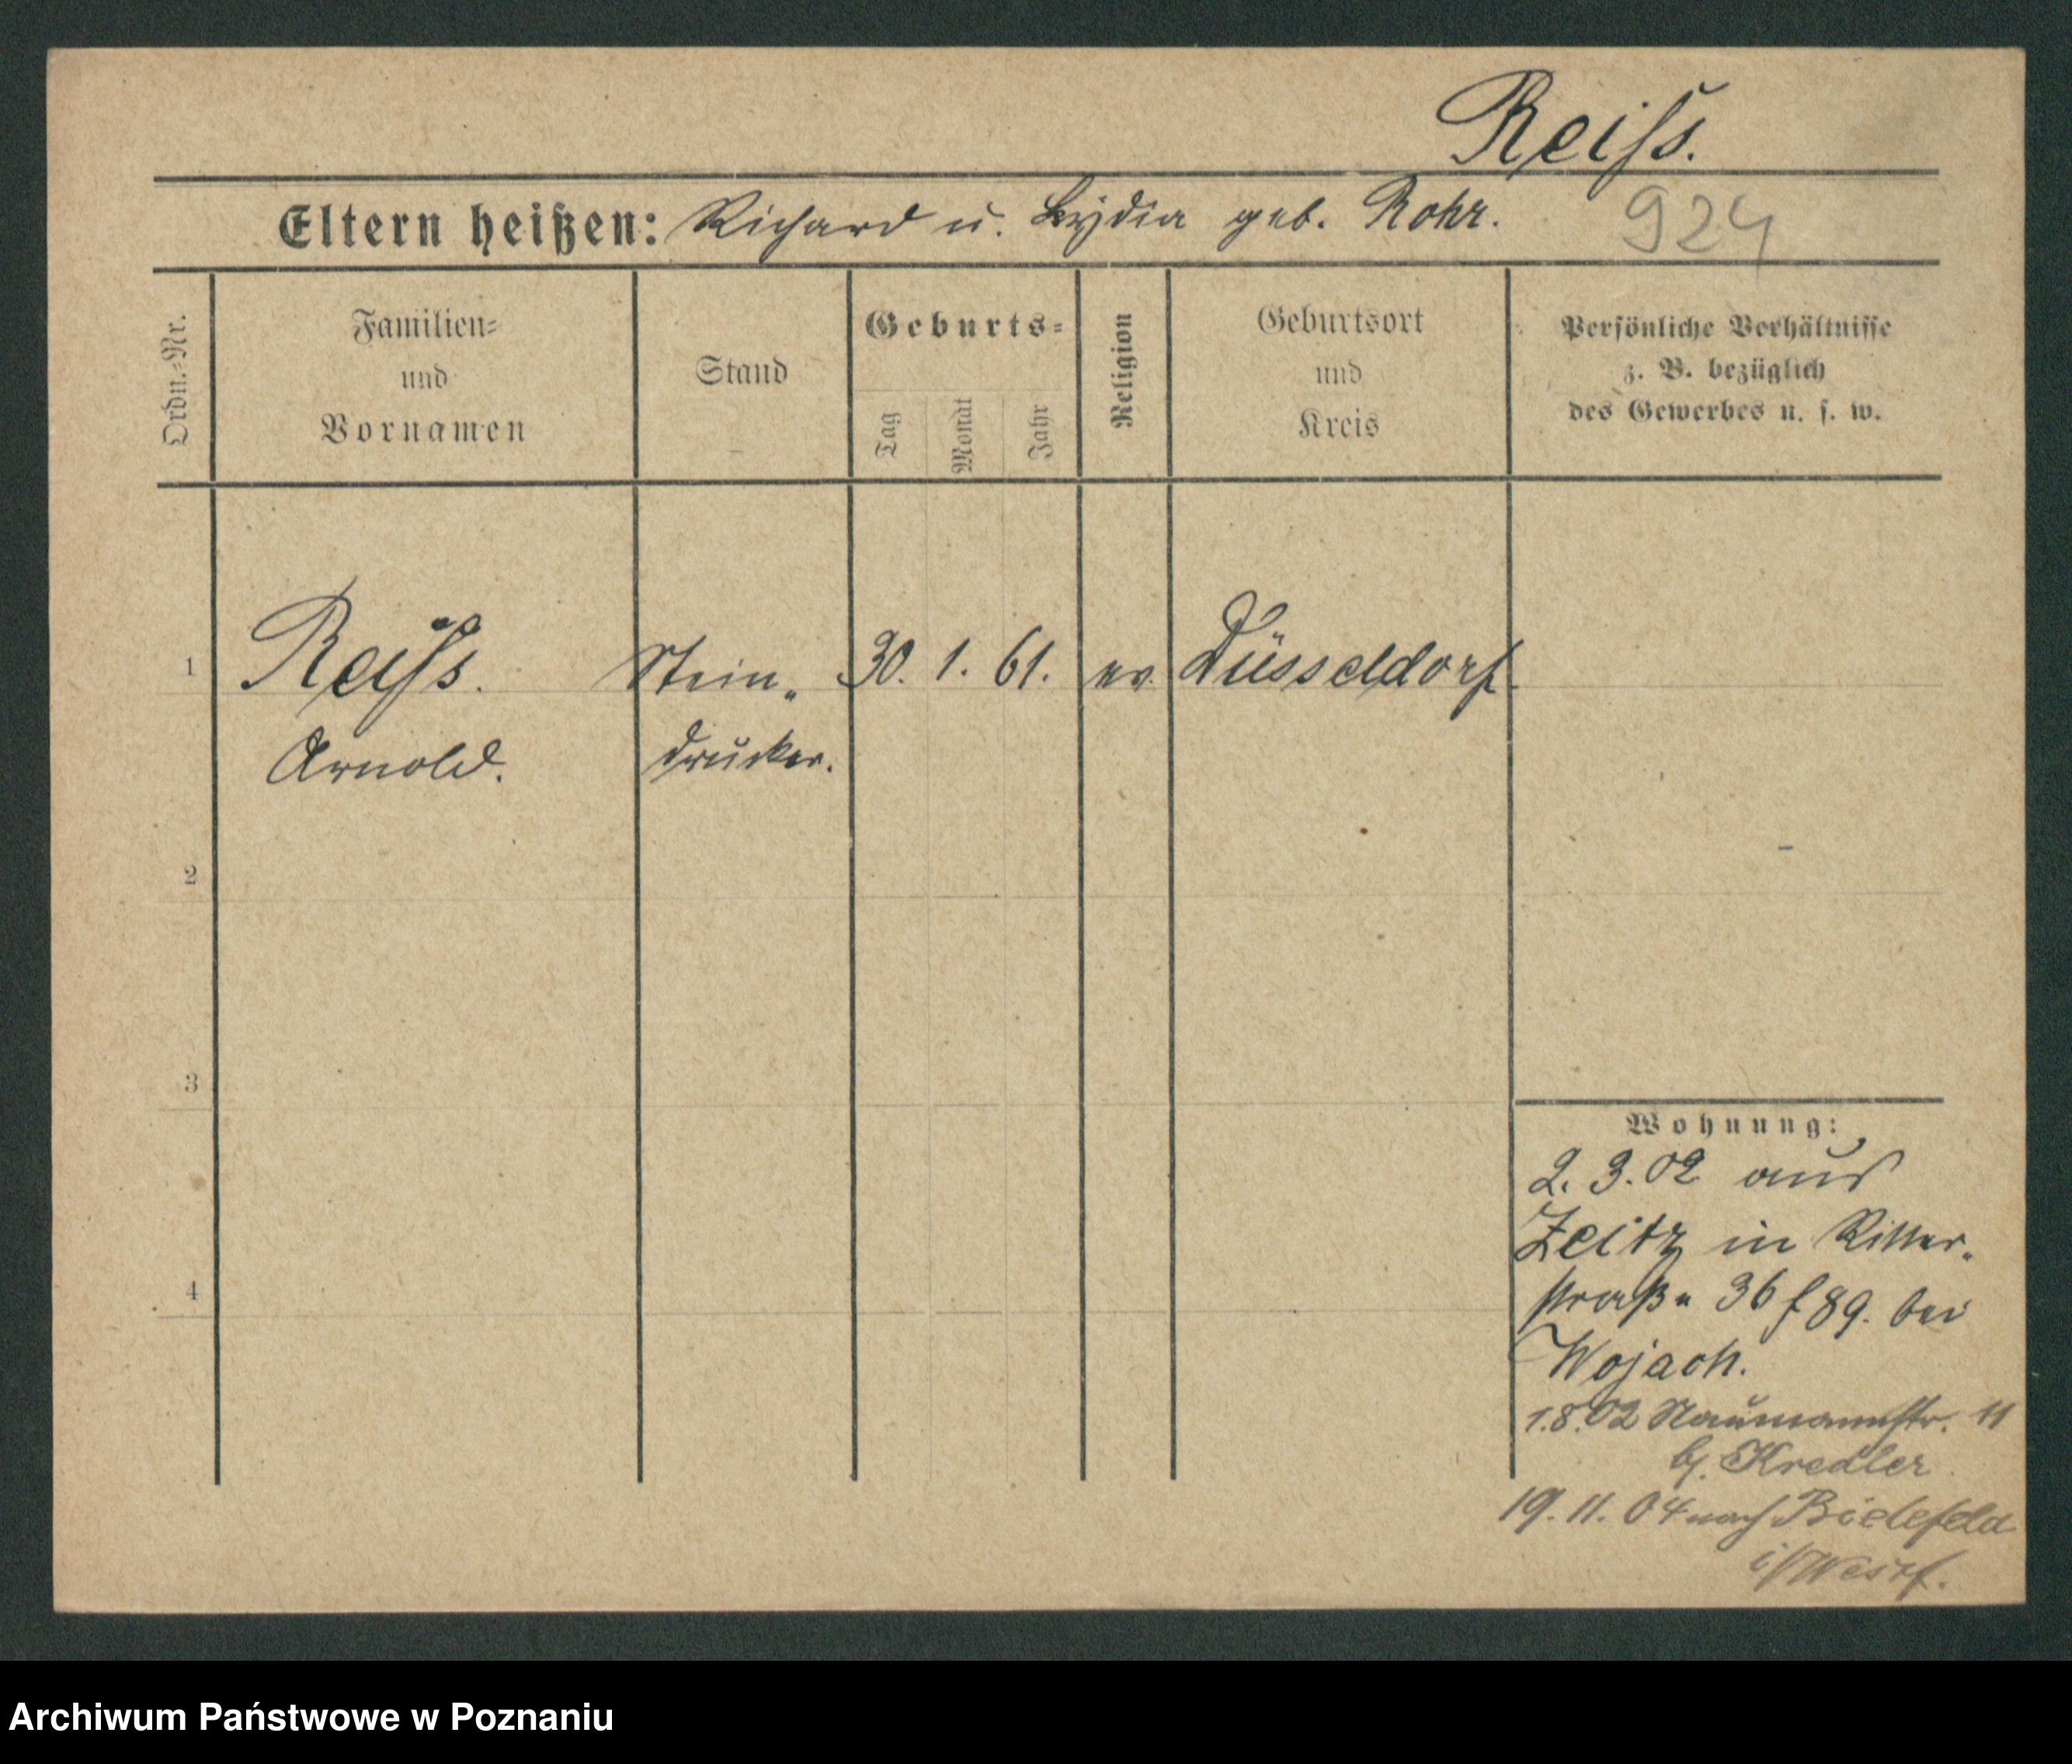 Reiſs.
Eltern heißen: Richard u. Lydia geb. Rohr. 924
Ordn.-Nr.
Familien-
und
Vornamen
Stand
Geburts-
Tag
Monat
Jahr
Religion
Geburtsort
und
Kreis
Persönliche Verhältnisse
z. B. bezüglich
des Gewerbes u. s. w.
1 Reiſs. Stein„ 30. 1. 61. ev. Düsseldorf
Arnold. drucker.
2
3
4
Wohnung:
2. 3. 02 aus
Zeitz in Ritter„
straße 36 f 89. bei
Wojach.
1.8.02 Naumannstr. 11
bj. Kredler
19. 11. 04 nach Bielefeld
i/Westf.
Archiwum Państwowe w Poznaniu